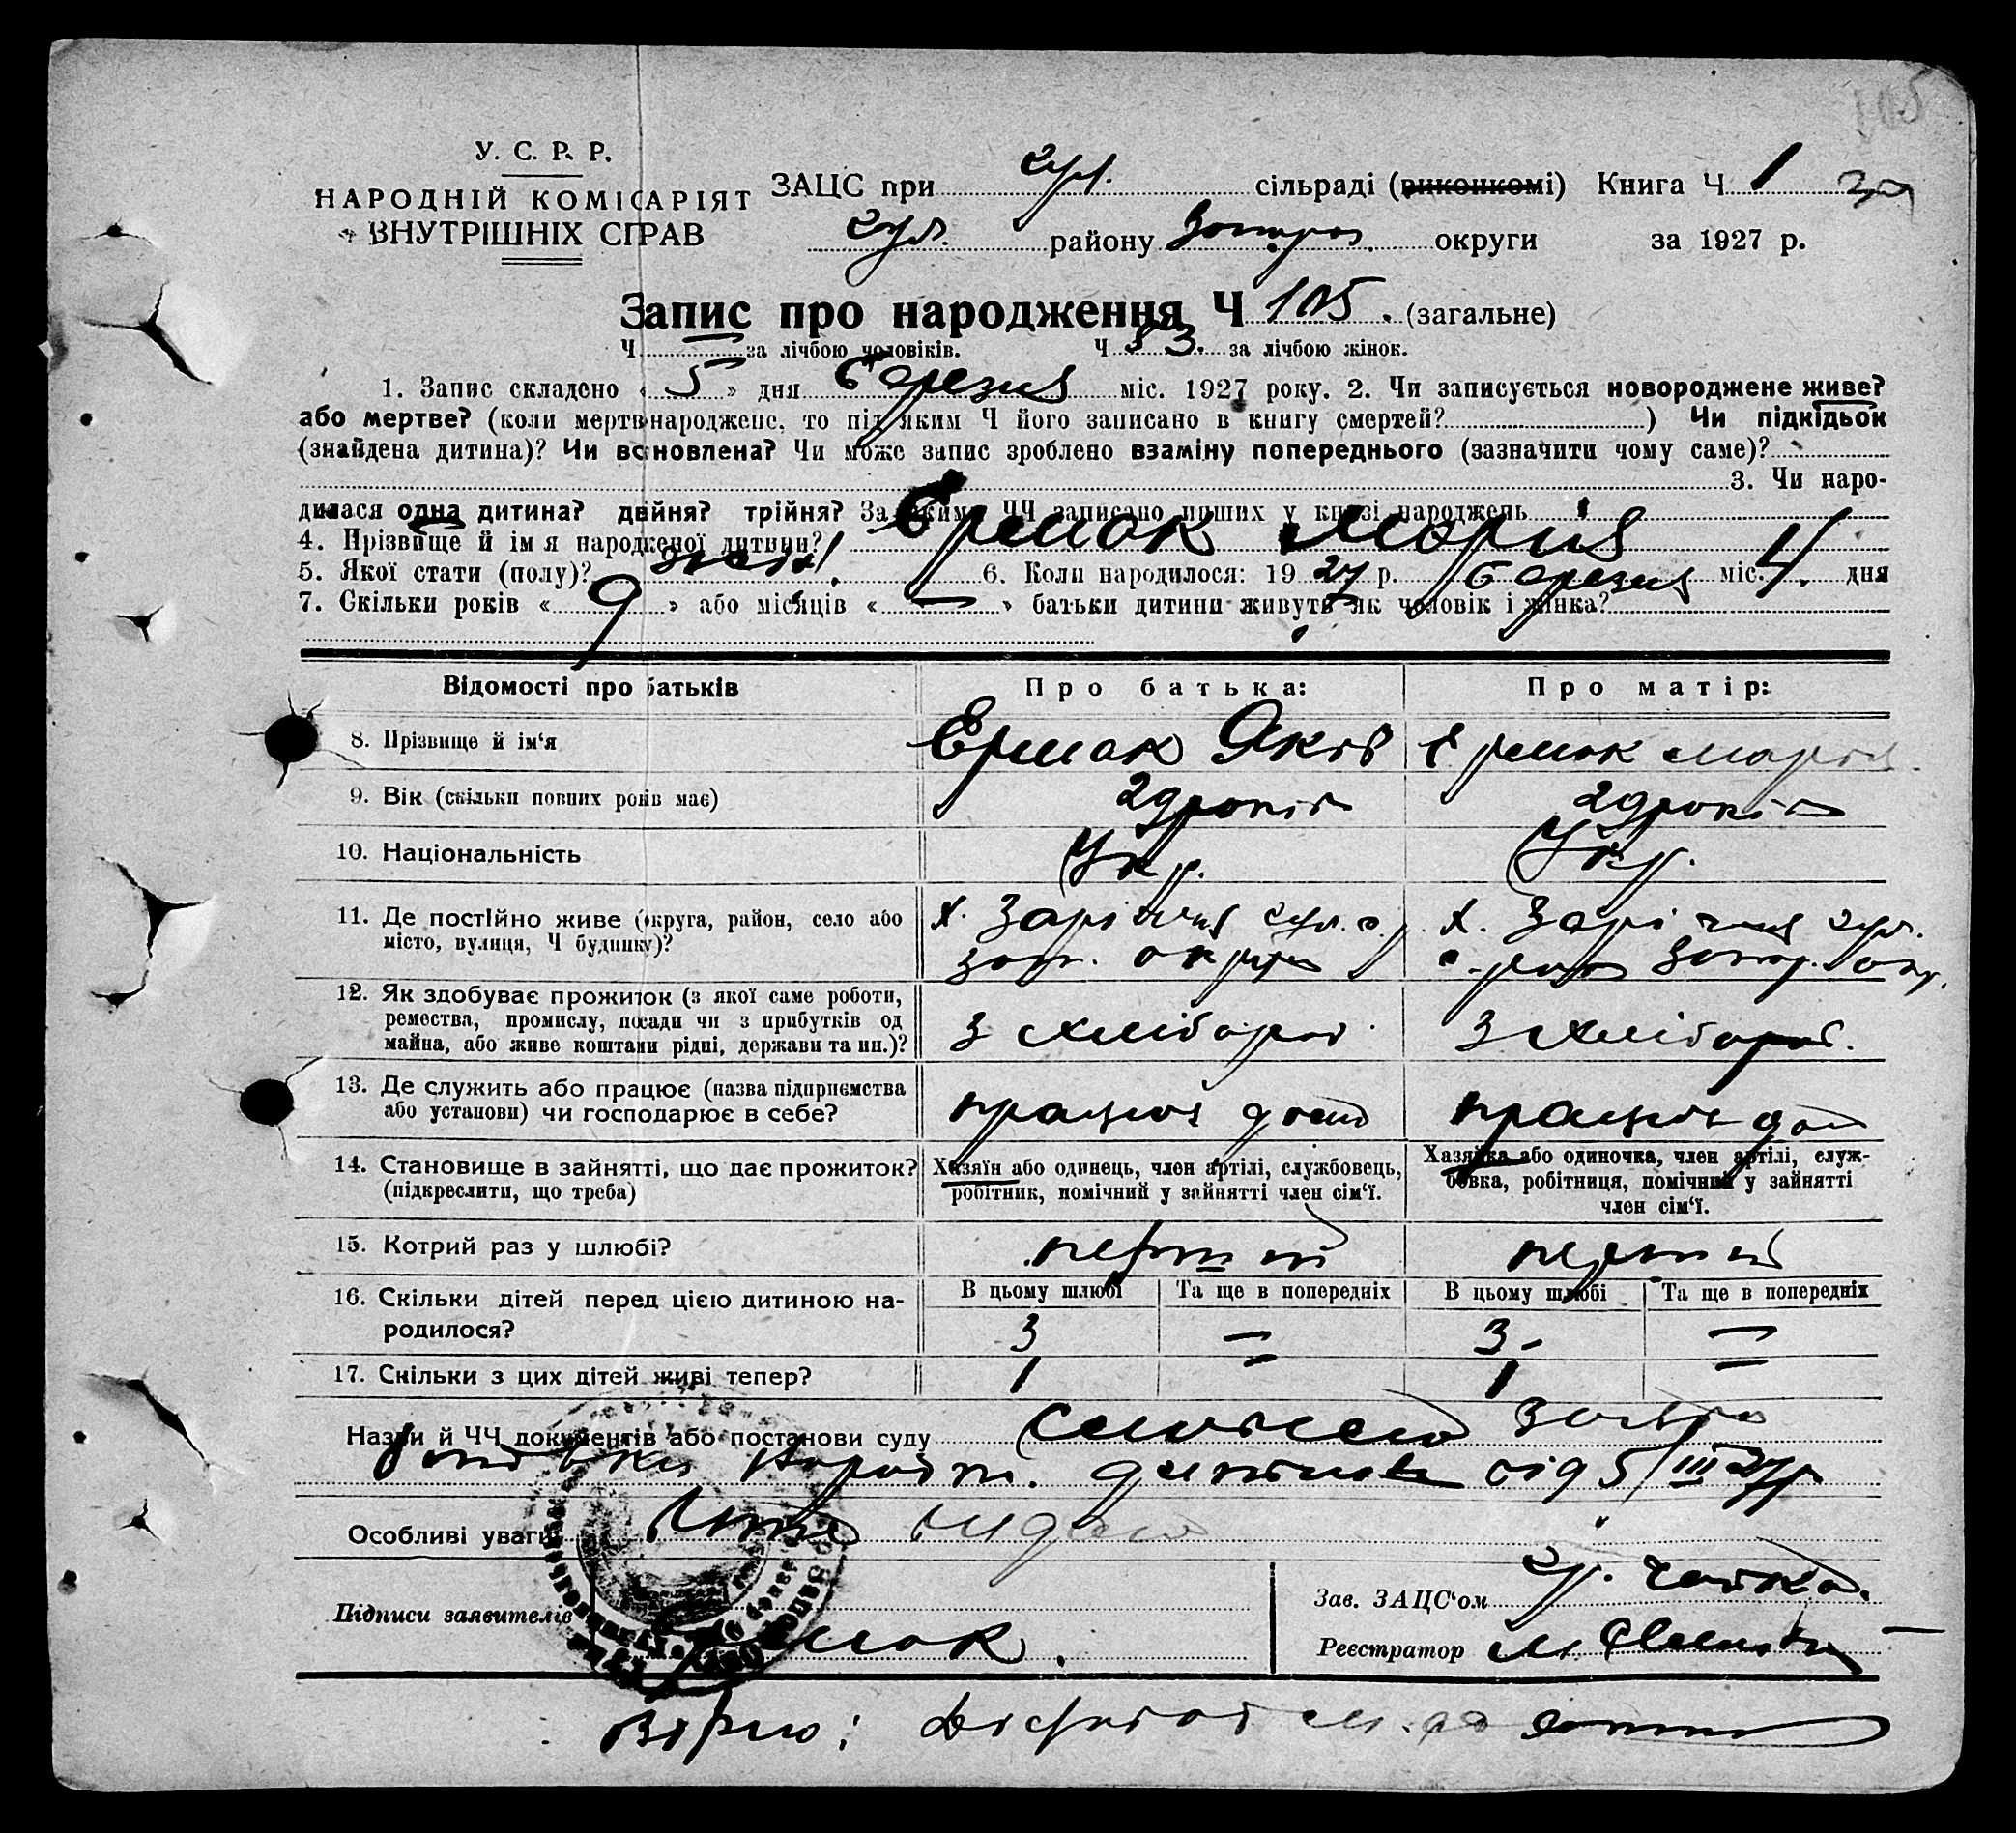 105
У. С. Р. Р.
НАРОДНІЙ КОМІСАРІЯТ
ВНУТРІШНІХ СПРАВ
ЗАЦС при Гул. сільраді (виконкомі) Книга Ч 1
Гул. району Запороз. округи за 1927 р.
Запис про народження Ч 105. (загальне)
Ч за лічбою чоловіків. Ч 53. за лічбою жінок.
1. Запис складено « 5 » дня березня міс. 1927 року. 2. Чи записується новороджене живе?
або мертве? (коли мертвнароджене, то під яким Ч його записано в книгу смертей? ) Чи підкідьок
(знайдена дитина)? Чи вс новлена? Чи може запис зроблено взаміну попереднього (зазначити чому саме)?
3. Чи наро-
дилася одна дитина? двійня? трійня? За якими ЧЧ записано инших у книзі народжень
4. Прізвище й ім я народженої дитини? Ермак Марія
5. Якої стати (полу)? жен. 6. Коли народилося: 19 27 р. березня міс. 4. дня
7. Скільки років « 9 » або місяців « — » батьки дитини живуть як чоловік і жинка?
Відомості про батьків Про батька: Про матір:
8. Прізвище й ім‘я Ермак Яків Ермак Марія
9. Вік (скільки повних років має) 29 років 29 років
10. Національність Укр. Укр.
11. Де постійно живе (округа, район, село або місто, вулиця, Ч будинку)?
х. Зарічня Гул. р. Зап. округи
х. Зарічня Гул. району Запор. окр.
12. Як здобуває прожиток (з якої саме роботи,
ремества, промислу, посади чи з прибутків од
майна, або живе коштами рідні, держави та ин.)?
з хліборов. з хліборов.
13. Де служить або працює (назва підприємства
або установи) чи господарює в себе?
працює дома працює дома
14. Становище в зайнятті, що дає прожиток?
(підкреслити, що треба)
Хазяїн або одинець, член артілі, службовець,
робітник, помічний у зайнятті член сім‘ї.
Хазяйка або одиночка, член артілі, служ-
бовка, робітниця, помічний у зайнятті
член сім‘ї.
15. Котрий раз у шлюбі? перший перший
16. Скільки дітей перед цією дитиною на-
родилося?
В цьому шлюбі Та ще в попередніх В цьому шлюбі Та ще в попередніх
3 — 3 —
17. Скільки з цих дітей живі тепер? 1 — 1 —
Назви й ЧЧ документів або постанови суду словесно заява
батька народж. дитини від 5/III 27 р
Особливі уваги видано
Підписи заявителів Ермак.
Зав. ЗАЦС‘ом Чайка.
Реєстратор М.
Вірно: Діловод